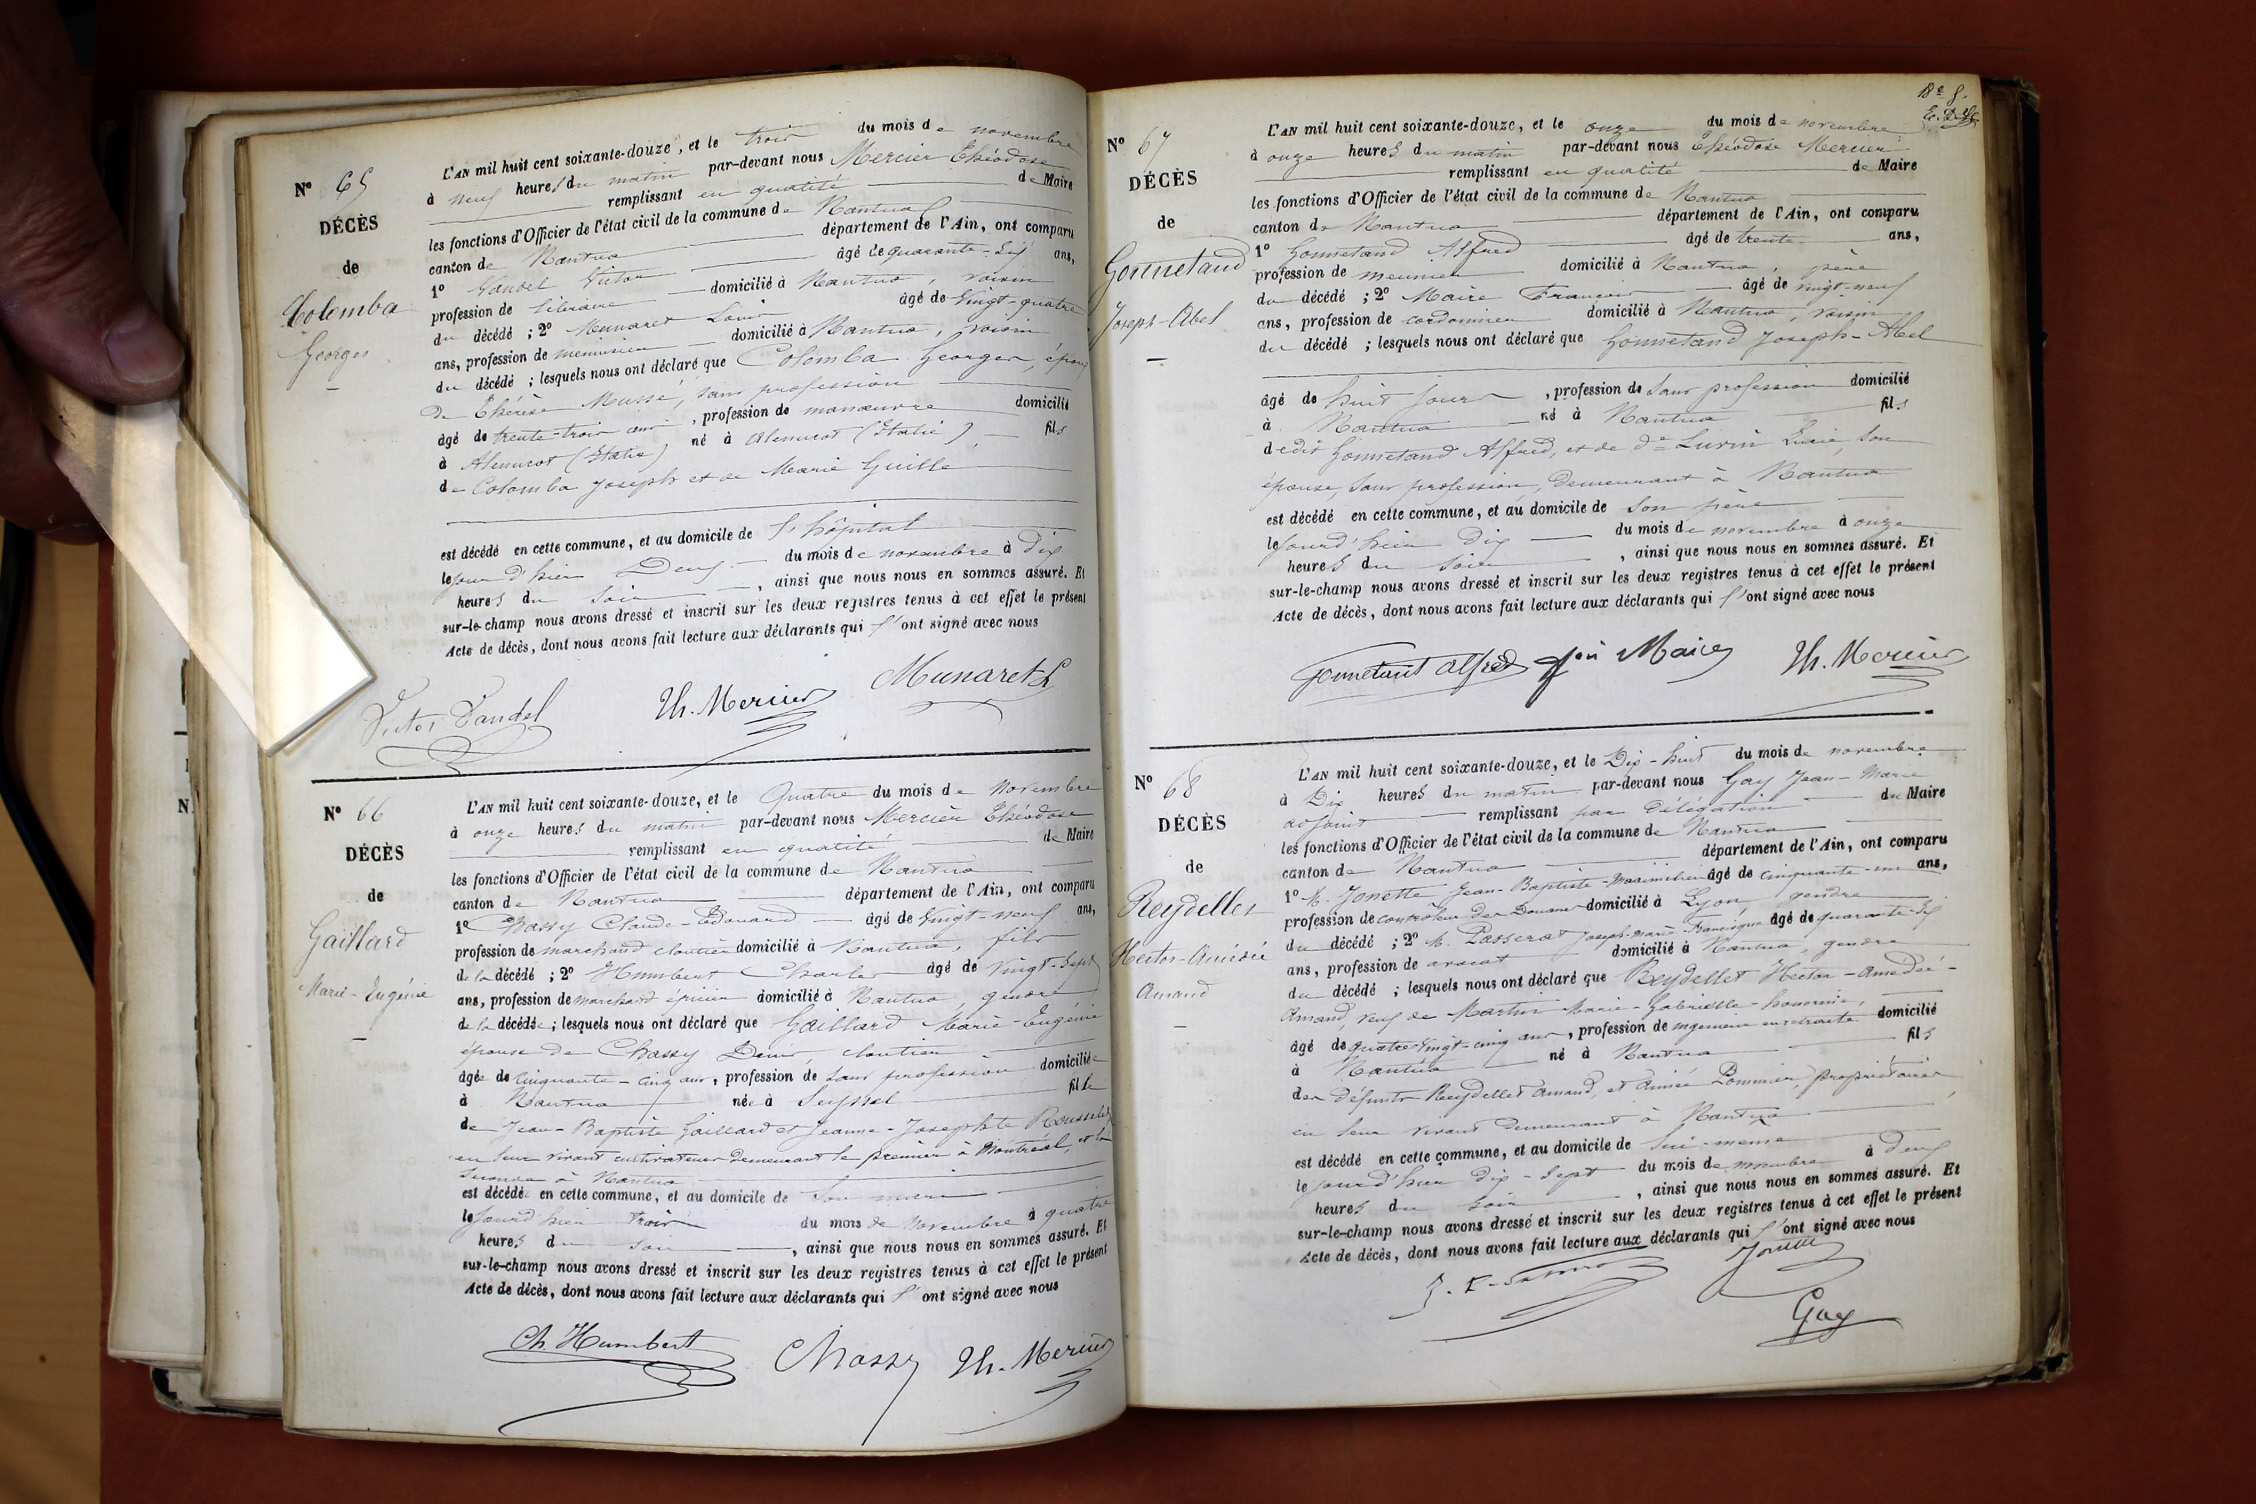 N° 65
DÉCÈS
de
Colomba
Georges
L'AN mil huit cent soixante-douze, et le trois du mois de novembre
à neuf heures du matin par-devant nous Mercier Théodose
remplissant en qualité de Maire
les fonctions d'Officier de l'état civil de la commune de Nantua
canton de Nantua département de l'Ain, ont comparu
1° Victor âgé de quarante-six ans,
profession de libraire domicilié à Nantua, voisin
du décédé ; 2° Munaret Louis âgé de vingt-quatre
ans, profession de menuisier domicilié à Nantua, voisin
du décédé ; lesquels nous ont déclaré que Colomba Georges, époux
de Thérèse Mussé, sans profession
âgé de trente-trois ans, profession de manœuvre domicilié
à (Italie) né à (Italie) fils
de Colomba Joseph et de Marie Guille
est décédé en cette commune, et au domicile de l'hôpital
le jour d'hier Deux du mois de novembre à dix
heures du soir, ainsi que nous nous en sommes assuré. Et
sur-le-champ nous avons dressé et inscrit sur les deux registres tenus à cet effet le présent
Acte de décès, dont nous avons fait lecture aux déclarants qui l'ont signé avec nous
Victor Th. Mercier Munaret L
N° 66
DÉCÈS
de
Gaillard
Marie-Eugénie
L'AN mil huit cent soixante-douze, et le Quatre du mois de Novembre
à onze heures du matin par-devant nous Mercier Théodose
remplissant en qualité de Maire
les fonctions d'Officier de l'état civil de la commune de Nantua
canton de Nantua département de l'Ain, ont comparu
1° Chassy Claude-Edouard âgé de vingt-neuf ans,
profession de marchand cloutier domicilié à Nantua, fils
de la décédé ; 2° Humbert Charles âgé de vingt-sept
ans, profession de marchand épicier domicilié à Nantua, gendre
de la décédée ; lesquels nous ont déclaré que Gaillard Marie-Eugénie
épouse de Chassy Denis, cloutier
âgée de cinquante-cinq ans, profession de sans profession domiciliée
à Nantua née à Seyssel fille
de Jean-Baptiste Gaillard et Jeanne-Josephte Rousselet
en leur vivant cultivateurs demeurant le premier à Montréal, et la
seconde à Nantua
est décédée en cette commune, et au domicile de son mari
le jourd'hier trois du mois de Novembre à quatre
heures du soir, ainsi que nous nous en sommes assuré. Et
sur-le-champ nous avons dressé et inscrit sur les deux registres tenus à cet effet le présent
Acte de décès, dont nous avons fait lecture aux déclarants qui l'ont signé avec nous
Ch. Humbert Chassy Th. Mercier
18e f.
N° 67
DÉCÈS
de
Gonnetand
Joseph-Abel
L'AN mil huit cent soixante-douze, et le onze du mois de novembre
à onze heures du matin par-devant nous Théodose Mercier
remplissant en qualité de Maire
les fonctions d'Officier de l'état civil de la commune de Nantua
canton de Nantua département de l'Ain, ont comparu
1° Gonnetand Alfred âgé de trente ans,
profession de meunier domicilié à Nantua, père
du décédé ; 2° Maire François âgé de vingt-neuf
ans, profession de cordonnier domicilié à Nantua, voisin
du décédé ; lesquels nous ont déclaré que Gonnetand Joseph-Abel
âgé de huit jours, profession de sans profession domicilié
à Nantua né à Nantua fils
dedit Gonnetand Alfred, et de de Lucie, son
épouse, sans profession, demeurant à Nantua
est décédé en cette commune, et au domicile de son père
le jourd'hier dix du mois de novembre à onze
heures du soir, ainsi que nous nous en sommes assuré. Et
sur-le-champ nous avons dressé et inscrit sur les deux registres tenus à cet effet le présent
Acte de décès, dont nous avons fait lecture aux déclarants qui l'ont signé avec nous
Gonnetant alfred Maire Th. Mercier
N° 68
DÉCÈS
de
Reydellet
Hector-Amédée
Amand
L'AN mil huit cent soixante-douze, et le Dix-huit du mois de novembre
à Dix heures du matin par-devant nous Gay Jean-Marie
adjoint remplissant par délégation du Maire
les fonctions d'Officier de l'état civil de la commune de Nantua
canton de Nantua département de l'Ain, ont comparu
1° M. Jonette Jean-Baptiste-Maximilien âgé de cinquante-un ans,
profession de contrôleur des Douanes domicilié à Lyon, gendre
du décédé ; 2° M. Passerat Joseph-Marie-Francisque âgé de quarante-six
ans, profession de avocat domicilié à Nantua, gendre
du décédé ; lesquels nous ont déclaré que Reydellet Hector-Amédée-
Amand, veuf de Martin Marie-Gabrielle-honorine,
âgé de quatre-vingt-cinq ans, profession de ingénieur en retraite domicilié
à Nantua né à Nantua fils
des défunts Reydellet Amand, et Aimée Pommier, propriétaires
en leur vivant demeurant à Nantua
est décédé en cette commune, et au domicile de lui-même
le jourd'hier dix-sept du mois de novembre à deux
heures du soir, ainsi que nous nous en sommes assuré. Et
sur-le-champ nous avons dressé et inscrit sur les deux registres tenus à cet effet le présent
Acte de décès, dont nous avons fait lecture aux déclarants qui l'ont signé avec nous
Jonette
Gay